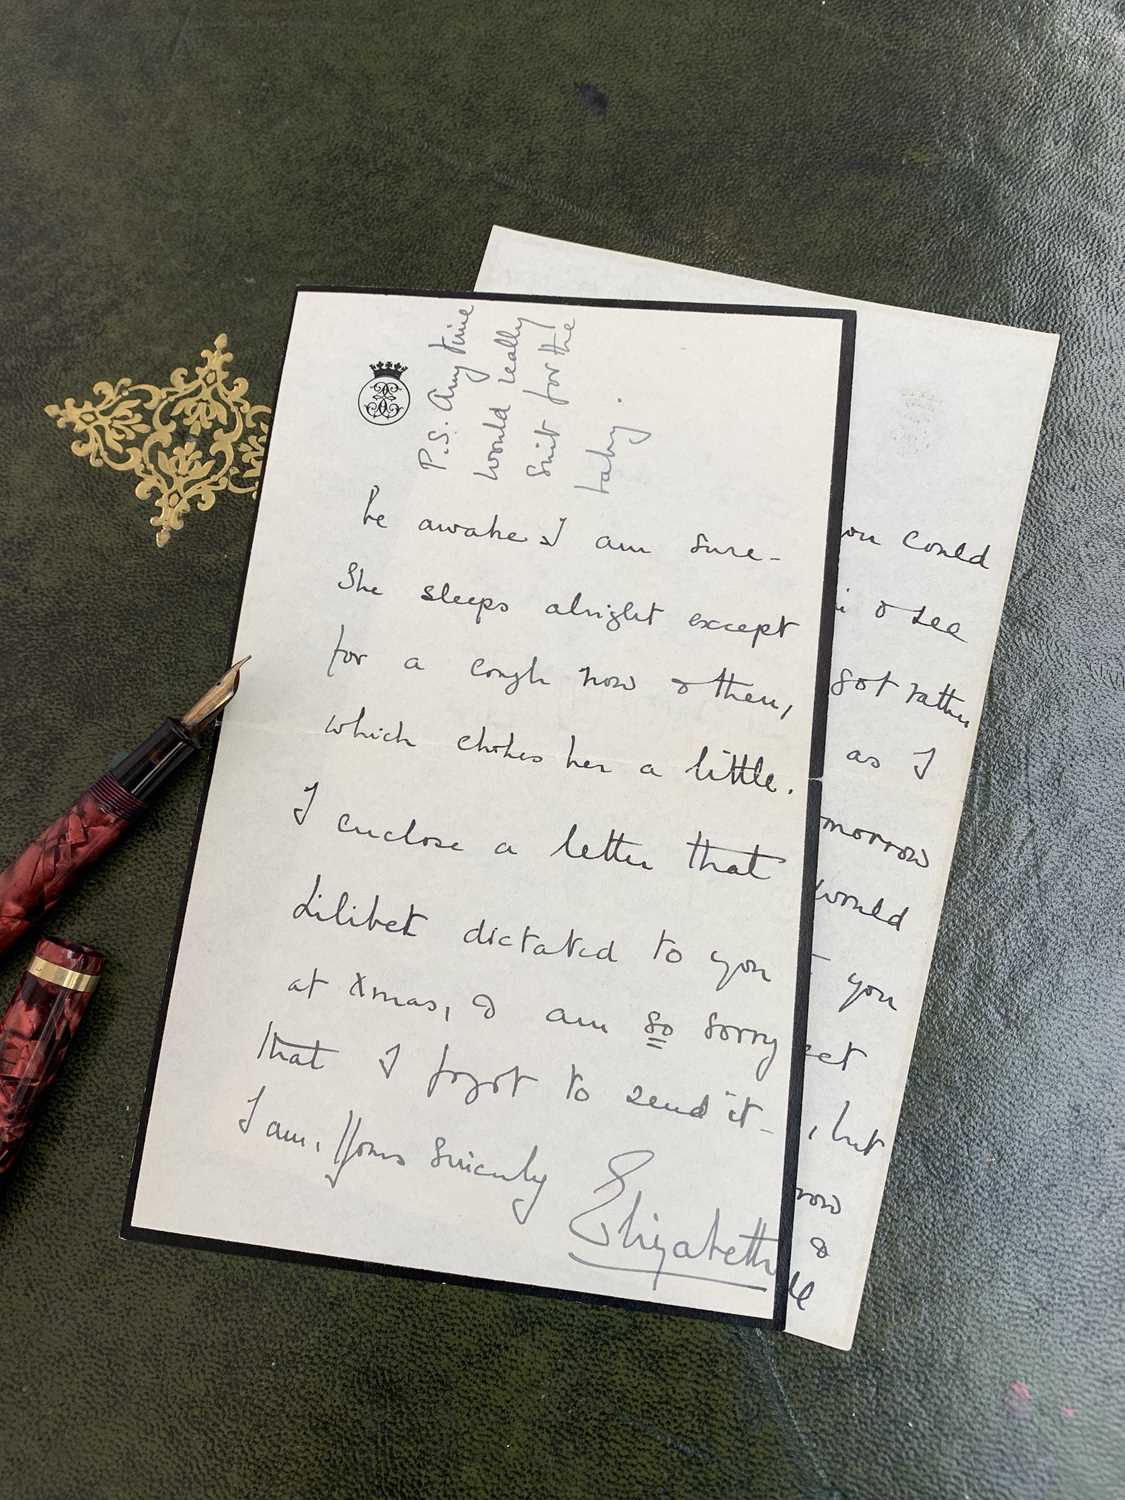 P.S. Any time
would really
suit for the
baby.
be awake I am sure -
She sleeps alright except
for a cough now & then,
which chokes her a little.
I enclose a letter that
Lilibet dictated to you
at Xmas, & am so sorry
that I forgot to send it -
I am, Yours sincerely
Elizabeth
you could
& see
got rather
as I
tomorrow
would
you
, but
&